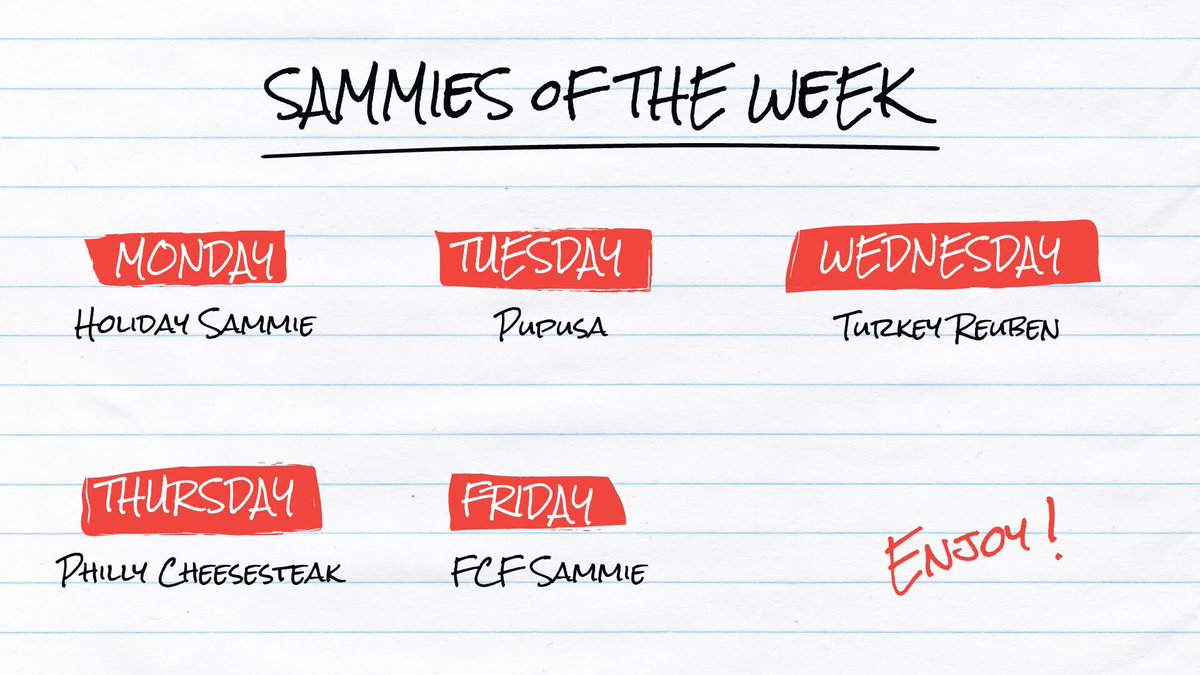 SAMMIES OF THE WEEK
MONDAY
HOLIDAY SAMMIE
TUESDAY
PUPUSA
WEDNESDAY
TURKEY REUBEN
THURSDAY
PHILLY CHEESESTEAK
FRIDAY
FCF SAMMIE
ENJOY!